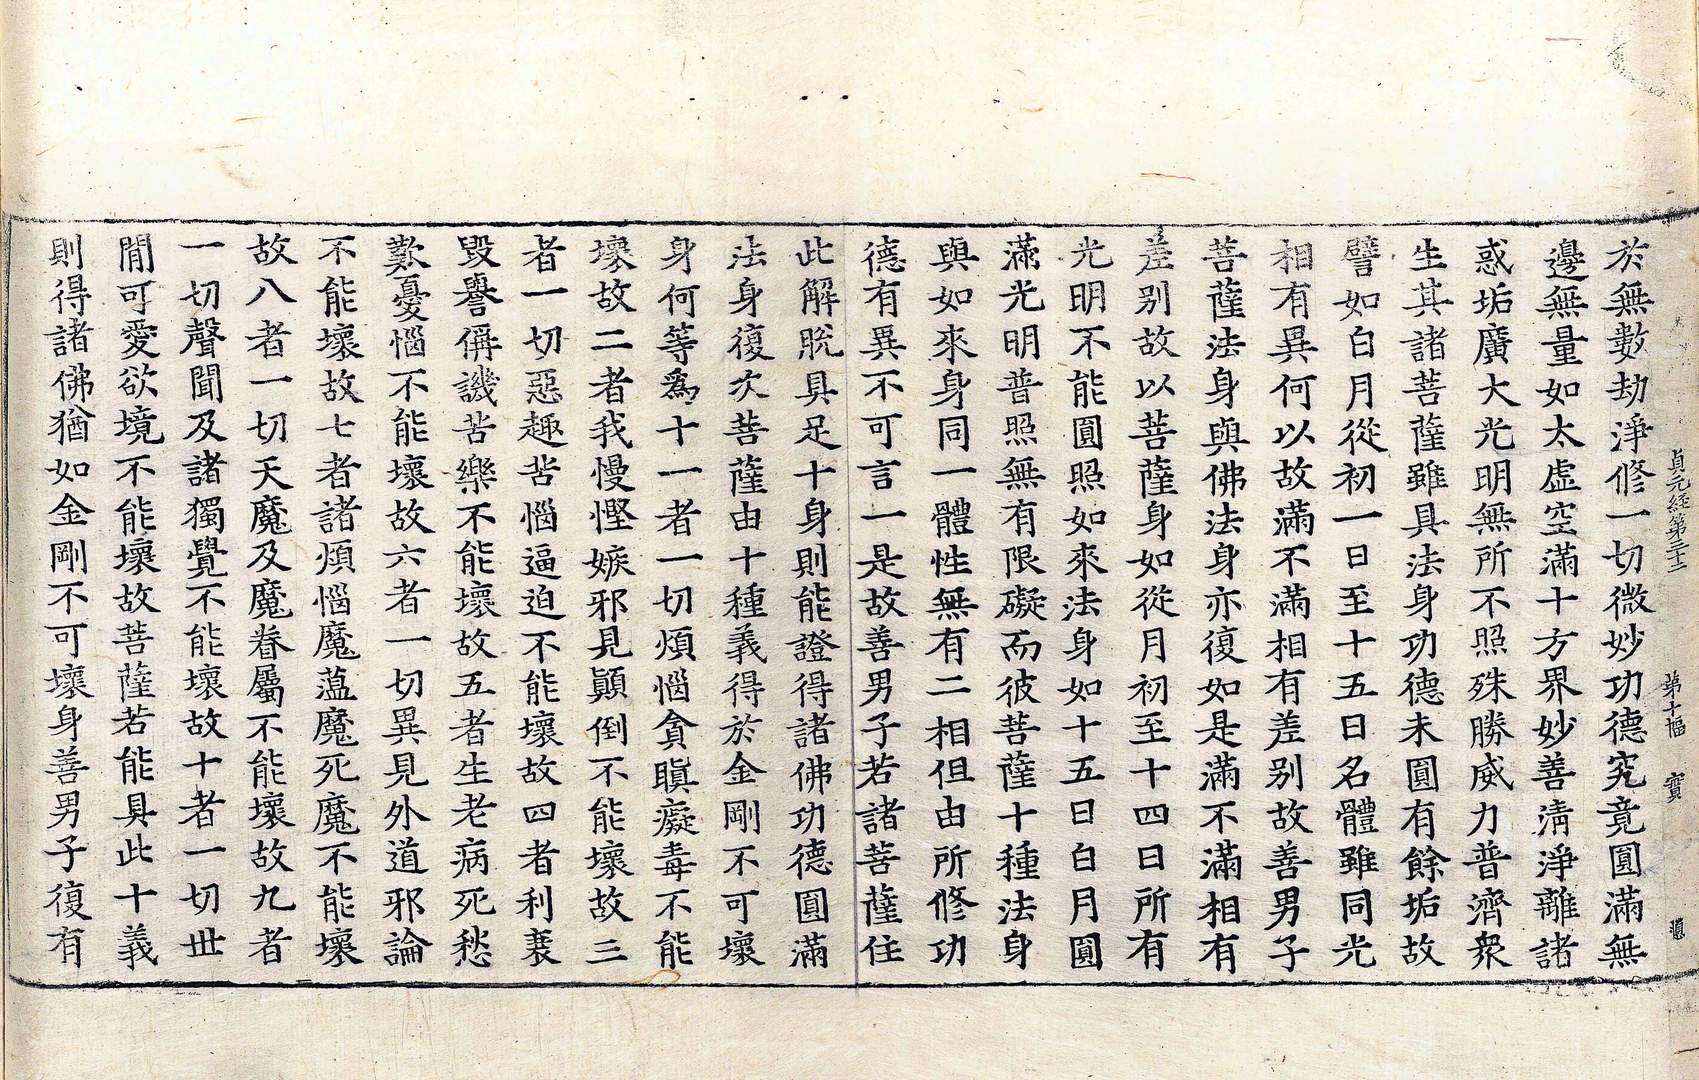 貞元經第三十二　第十幅　寶
於無數劫淨修一切微妙功德究竟圓滿無
邊無量如太虛空滿十方界妙善清淨離諸
惑垢廣大光明無所不照殊勝威力普濟衆
生其諸菩薩雖具法身功德未圓有餘垢故
譬如白月從初一日至十五日名體雖同光
相有異何以故滿不滿相有差别故善男子
菩薩法身與佛法身亦復如是滿不滿相有
差别故以菩薩身如從月初至十四日所有
光明不能圓照如來法身如十五日白月圓
滿光明普照無有限礙而彼菩薩十種法身
與如來身同一體性無有二相但由所修功
德有異不可言一是故善男子若諸菩薩住
此解脫具足十身則能證得諸佛功德圓滿
法身復次菩薩由十種義得於金剛不可壞
身何等爲十一者一切煩惱貪瞋癡毒不能
壞故二者我慢慳嫉邪見顚倒不能壞故三
者一切惡趣苦惱逼迫不能壞故四者利衰
毀譽稱譏苦樂不能壞故五者生老病死愁
歎憂惱不能壞故六者一切異見外道邪論
不能壞故七者諸煩惱魔薀魔死魔不能壞
故八者一切天魔及魔眷屬不能壞故九者
一切聲聞及諸獨覺不能壞故十者一切世
閒可愛欲境不能壞故菩薩若能具此十義
則得諸佛猶如金剛不可壞身善男子復有